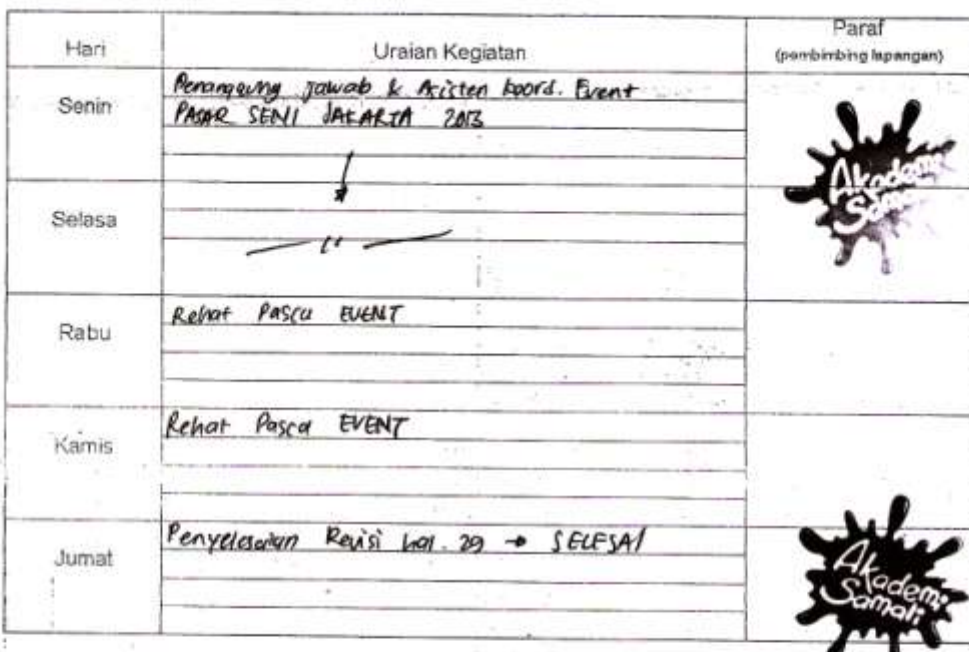 Hari Uraian Kegiatan Paraf
(pembimbing lapangan)
Senin
Penanggung jawab & Asisten koord. Event
PASAR SENI JAKARTA 2013
Akademi
Samali
Selasa
— '' —
Rabu
Rehat Pasca EVENT
Kamis
Rehat Pasca EVENT
Jumat
Penyelesaian Revisi hal. 29 → SELESAI
Akademi
Samali